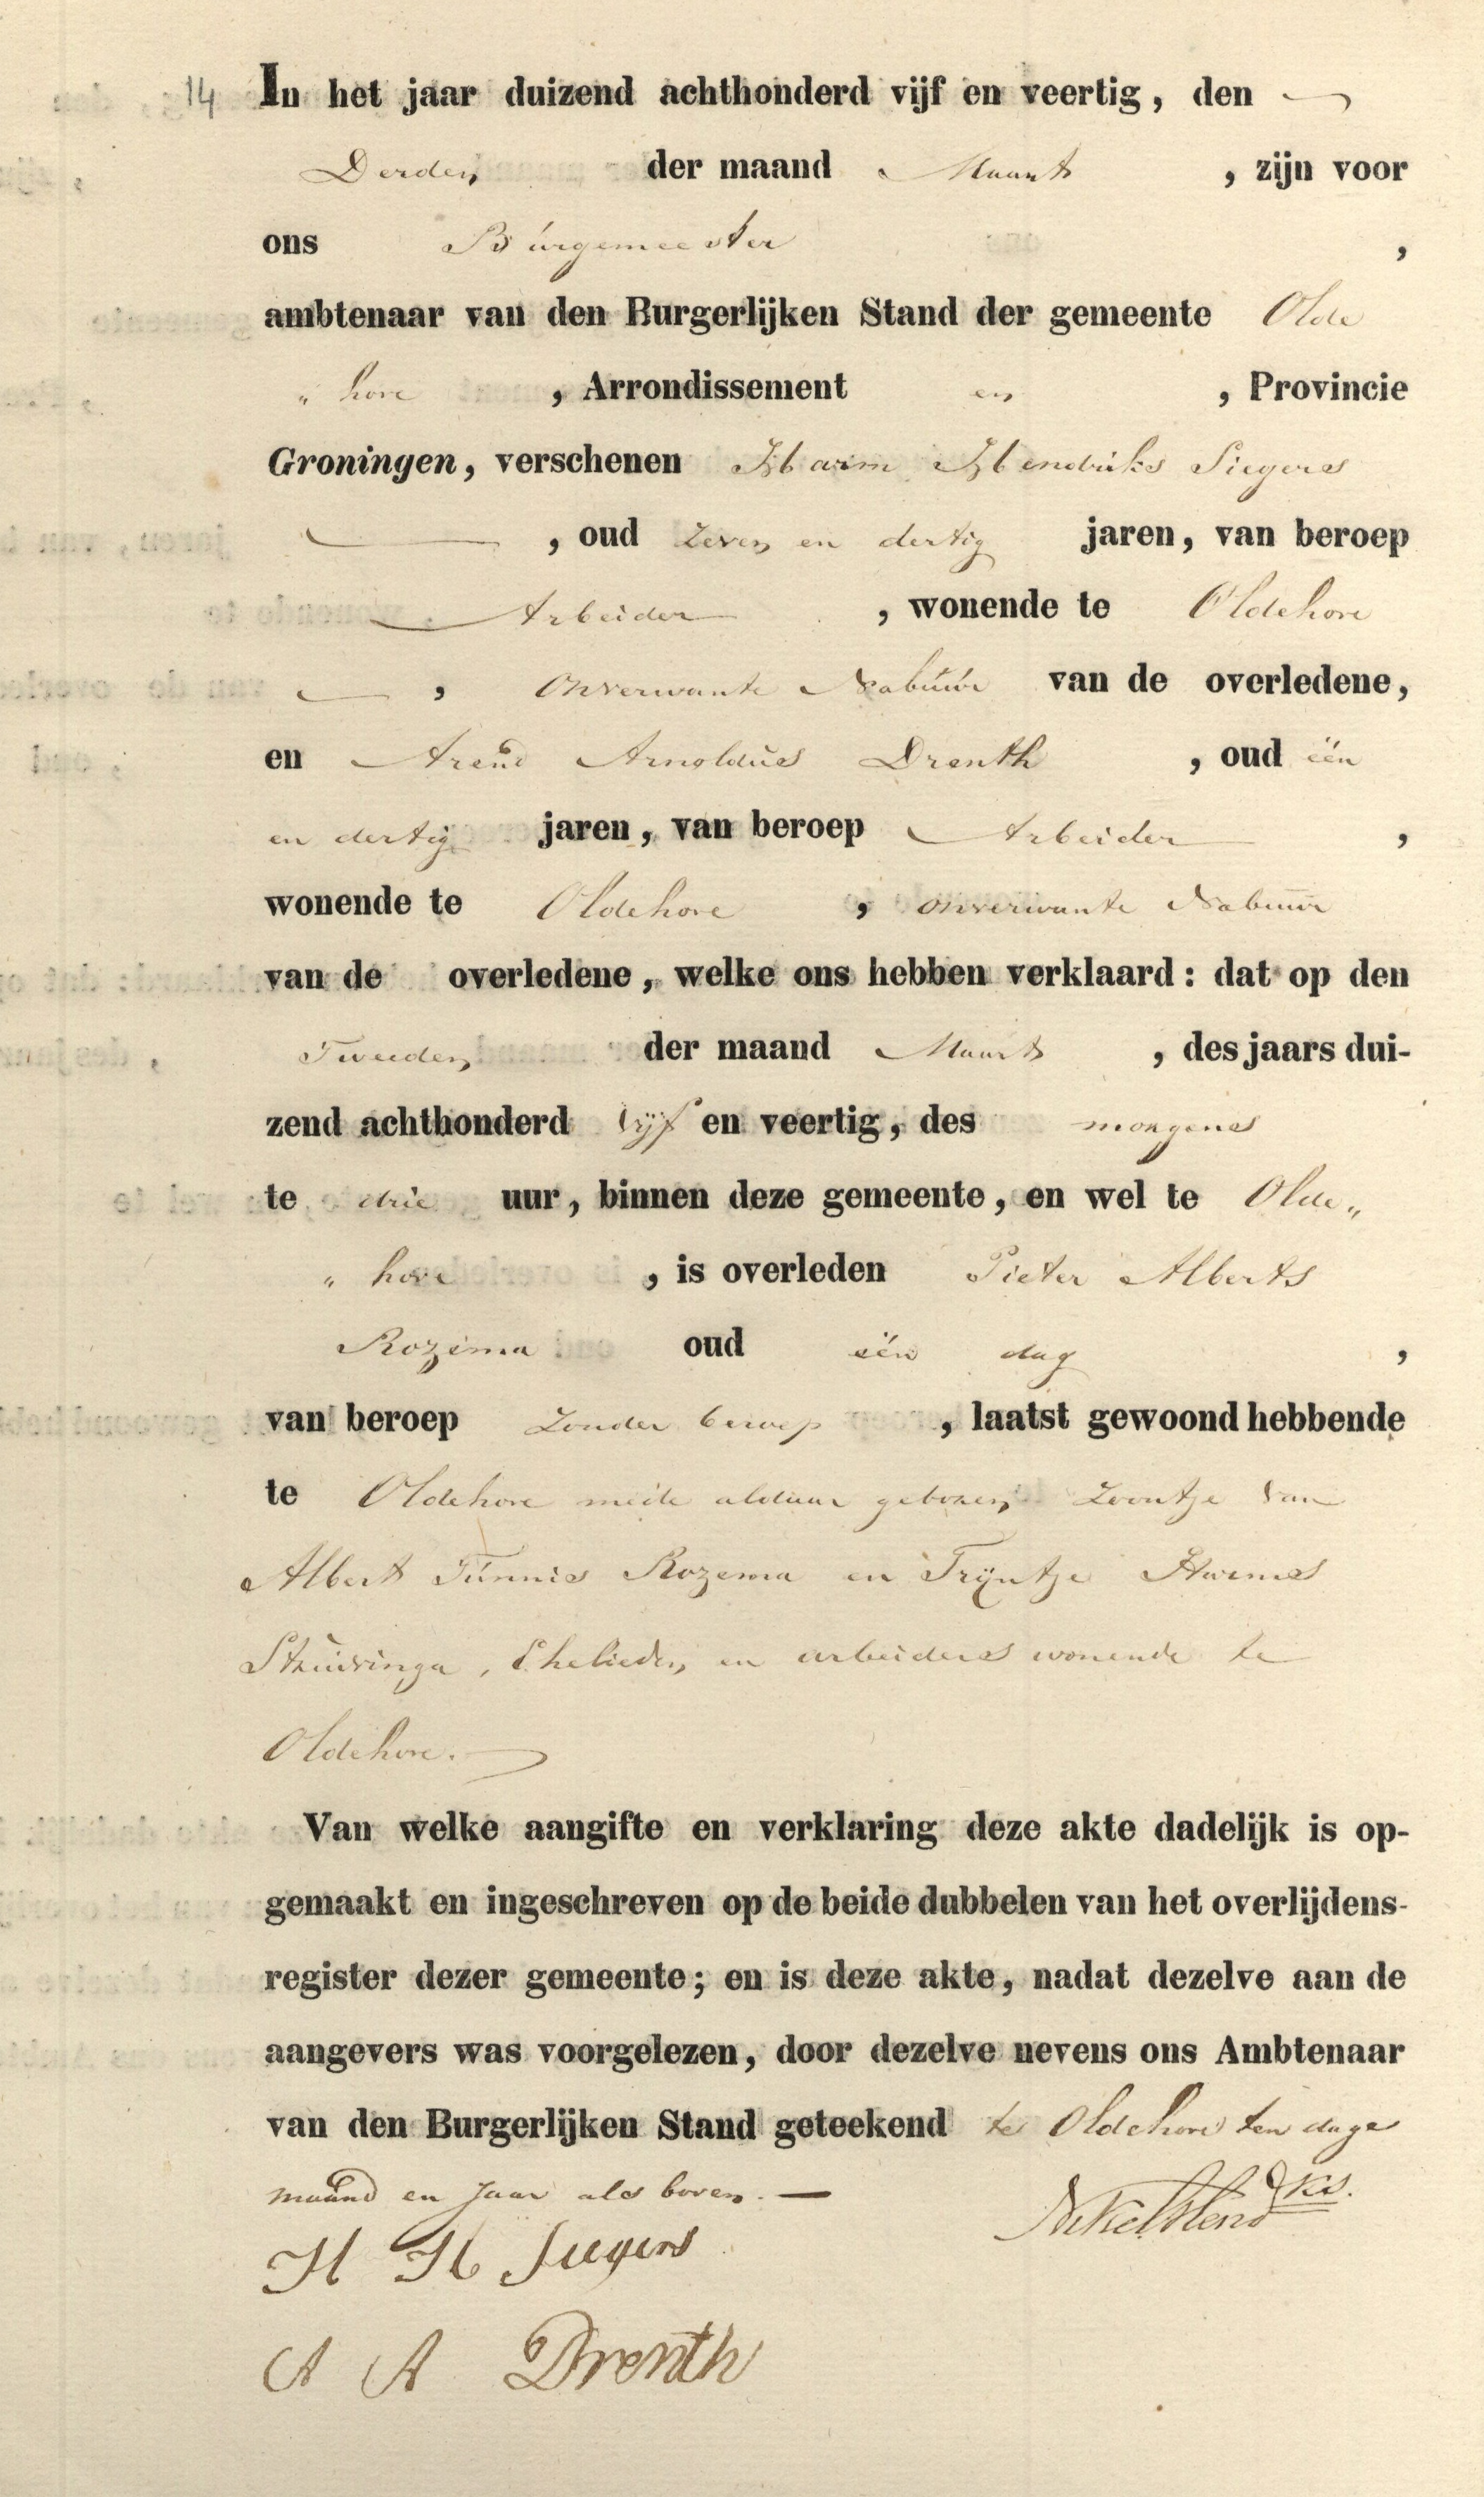 14 In het jaar duizend achthonderd vijf en veertig, den
Derden der maand Maart, zijn voor
ons Burgemeester,
ambtenaar van den Burgerlijken Stand der gemeente Olde
" hove, Arrondissement en, Provincie
Groningen, verschenen Harm Hendriks Siegers
, oud Zeven en dertig jaren, van beroep
Arbeider, wonende te Oldehove
, onverwante Nabuur van de overledene,
en Arend Arnoldus Drenth, oud één
en dertig jaren, van beroep Arbeider,
wonende te Oldehove, onverwante Nabuur
van de overledene, welke ons hebben verklaard: dat op den
Tweeden der maand Maart, des jaars dui-
zend achthonderd vijf en veertig, des morgens
te drie uur, binnen deze gemeente, en wel te Olde„
" hove, is overleden Pieter Alberts
Rozema oud één dag,
van beroep Zonder beroep, laatst gewoond hebbende
te Oldehove mede aldaar geboren Zoontje van
Albert Tunnis Rozema en Trijntje Harmes
Stuivinga, Ehelieden en arbeiders wonende te
Oldehove.
Van welke aangifte en verklaring deze akte dadelijk is op-
gemaakt en ingeschreven op de beide dubbelen van het overlijdens-
register dezer gemeente; en is deze akte, nadat dezelve aan de
aangevers was voorgelezen, door dezelve nevens ons Ambtenaar
van den Burgerlijken Stand geteekend te Oldehove ten dage
maand en Jaar als boven.
H H Siegers
A A Drenth